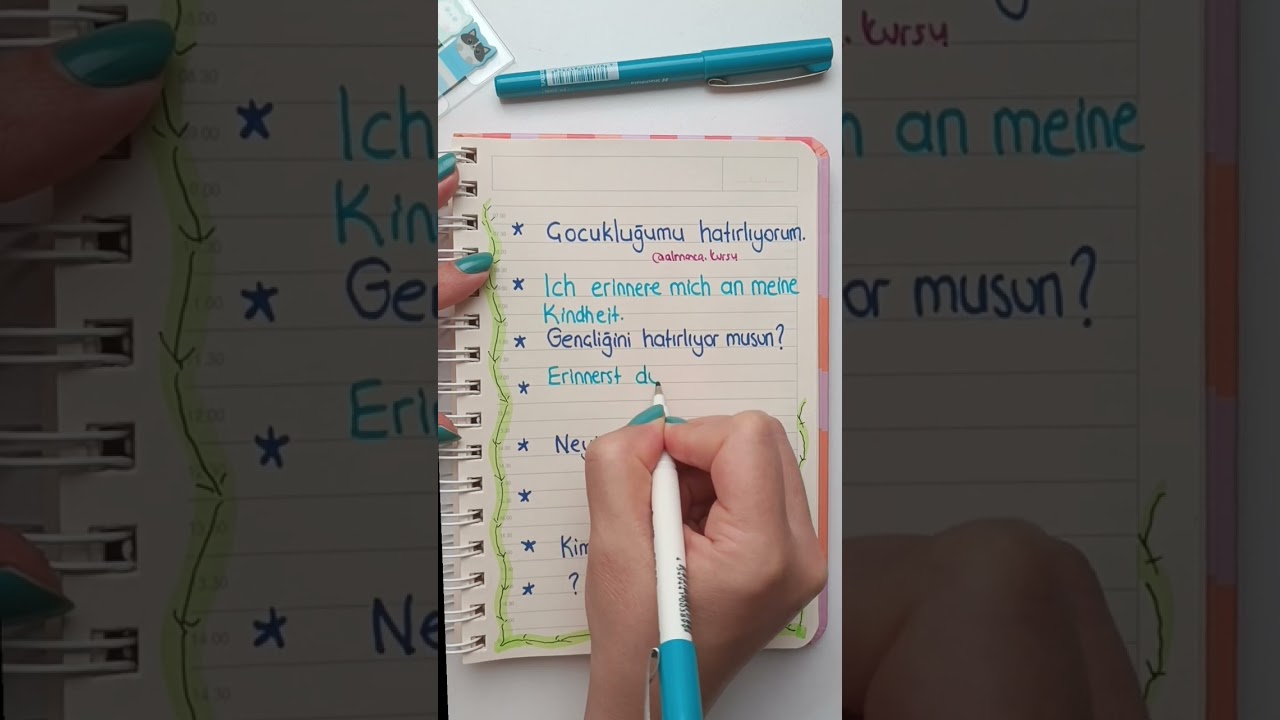 * Çocukluğumu hatırlıyorum.
@almanca.kursu
* Ich erinnere mich an meine
Kindheit.
* Gençliğini hatırlıyor musun?
* Erinnerst du
*
*
* ?